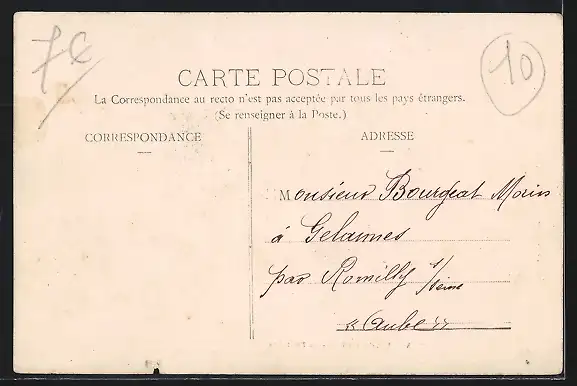 7€
10
CARTE POSTALE
La Correspondance au recto n'est pas acceptée par tous les pays étrangers.
(Se renseigner à la Poste.)
CORRESPONDANCE
ADRESSE
Monsieur Bourgeat Morin
à Gelannes
par Romilly s/Seine
"Aube"